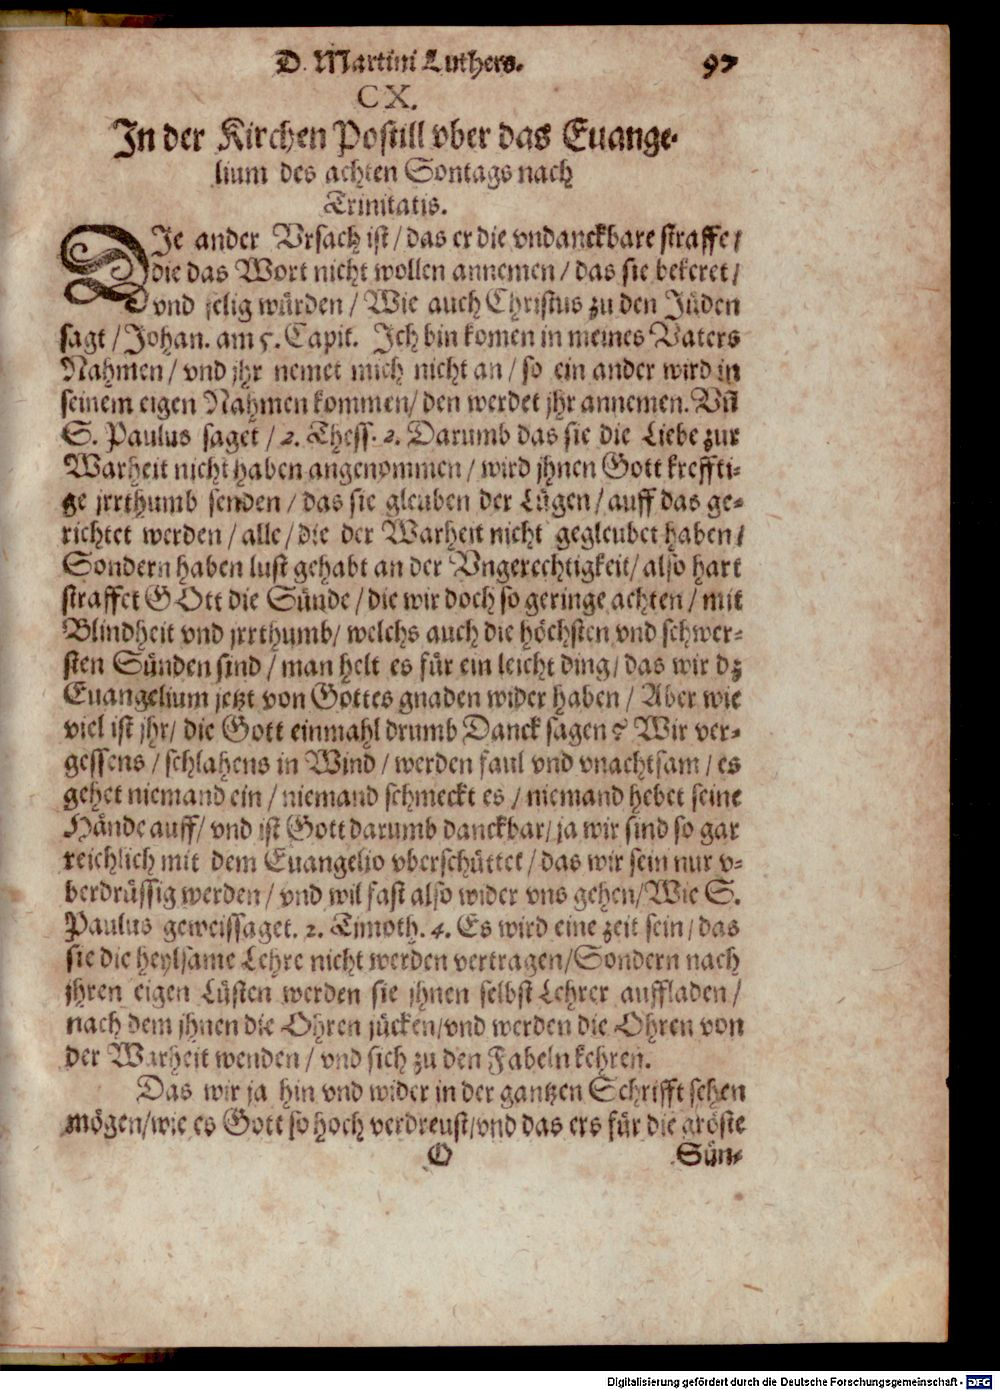 D. Martini Luthers. 97
CX.
In der Kirchen Postill vber das Euange-
lium des achten Sontags nach
Trinitatis.
DJe ander Vrsach ist / das er die vndanckbare straffe /
die das Wort nicht wollen annemen / das sie bekeret /
vnd selig würden / Wie auch Christus zu den Jüden
sagt / Johan. am 5. Capit. Jch bin komen in meines Vaters
Nahmen / vnd jhr nemet mich nicht an / so ein ander wird in
seinem eigen Nahmen kommen / den werdet jhr annemen. Vñ
S. Paulus saget / 2. Thess. 2. Darumb das sie die Liebe zur
Warheit nicht haben angenommen / wird jhnen Gott kreffti-
ge jrrthumb senden / das sie gleuben der Lügen / auff das ge-
richtet werden / alle / die der Warheit nicht gegleubet haben /
Sondern haben lust gehabt an der Vngerechtigkeit / also hart
straffet GOtt die Sünde / die wir doch so geringe achten / mit
Blindheit vnd jrrthumb / welchs auch die höchsten vnd schwer-
sten Sünden sind / man helt es für ein leicht ding / das wir dz
Euangelium jetzt von Gottes gnaden wider haben / Aber wie
viel ist jhr / die Gott einmahl drumb Danck sagen? Wir ver-
gessens / schlahens in Wind / werden faul vnd vnachtsam / es
gehet niemand ein / niemand schmeckt es / niemand hebet seine
Hände auff / vnd ist Gott darumb danckbar / ja wir sind so gar
reichlich mit dem Euangelio vberschüttet / das wir sein nur v-
berdrüssig werden / vnd wil fast also wider vns gehen / Wie S.
Paulus geweissaget. 2. Timoth. 4. Es wird eine zeit sein / das
sie die heylsame Lehre nicht werden vertragen / Sondern nach
jhren eigen Lüsten werden sie jhnen selbst Lehrer auffladen /
nach dem jhnen die Ohren jücken / vnd werden die Ohren von
der Warheit wenden / vnd sich zu den Fabeln kehren.
Das wir ja hin vnd wider in der gantzen Schrifft sehen
mögen / wie es Gott so hoch verdreust / vnd das ers für die gröste
O Sün-
Digitalisierung gefördert durch die Deutsche Forschungsgemeinschaft - DFG